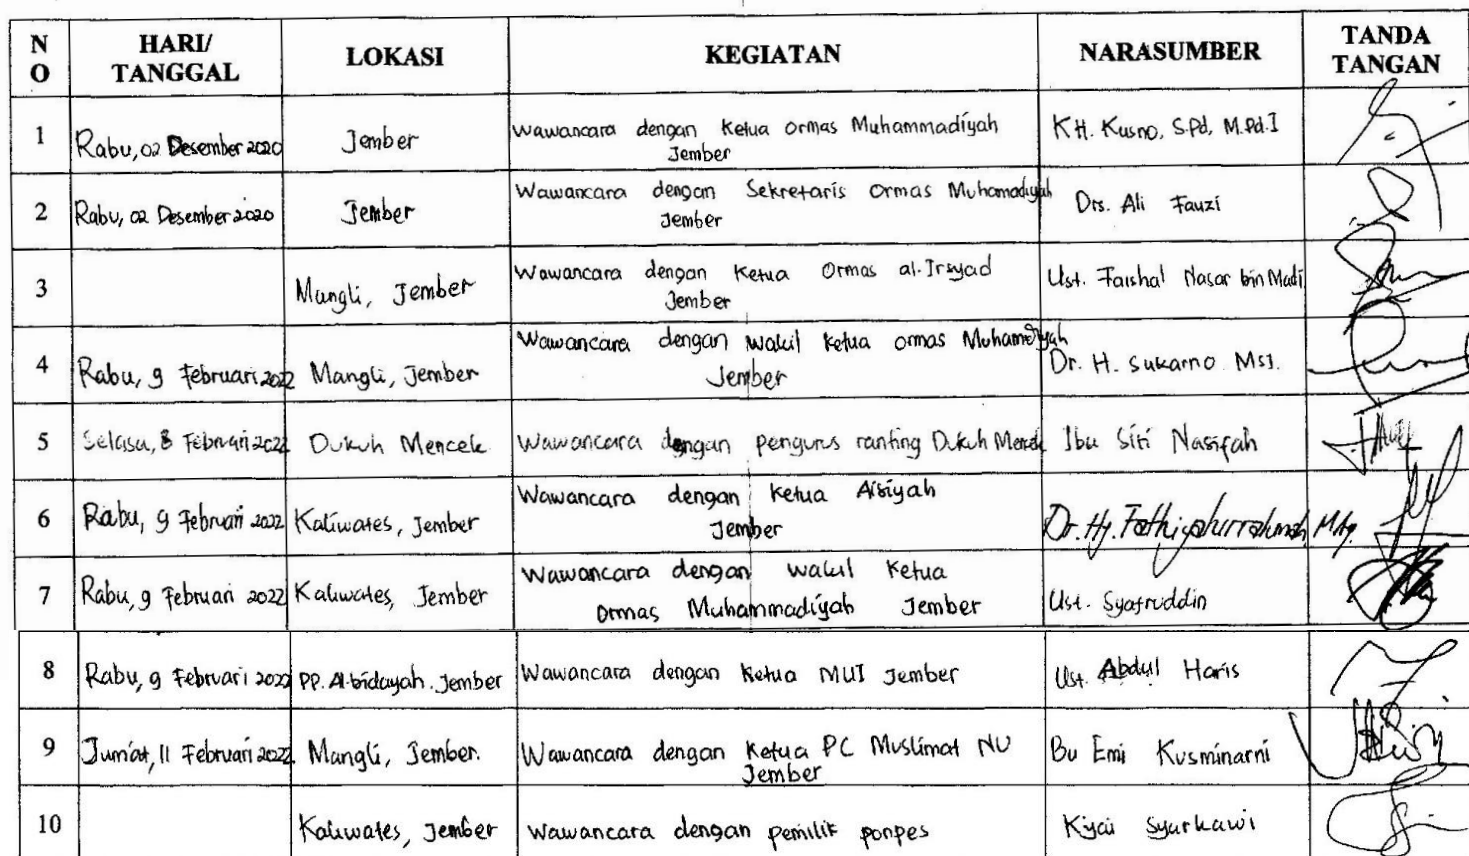 NO HARI/TANGGAL LOKASI KEGIATAN NARASUMBER TANDA TANGAN
1 Rabu, 02 Desember 2020 Jember Wawancara dengan Ketua Ormas Muhammadiyah Jember KH. Kusno, S.Pd, M.Pd.I
2 Rabu, 02 Desember 2020 Jember Wawancara dengan Sekretaris Ormas Muhamadiyah Jember Drs. Ali Fauzi
3 Mangli, Jember Wawancara dengan Ketua Ormas al-Irsyad Jember Ust. Faishal Nasar bin Madi
4 Rabu, 9 Februari 2022 Mangli, Jember Wawancara dengan Wakil Ketua ormas Jember Dr. H. Sukarno MSI.
5 Selasa, 8 Februari 2022 Dukuh Mencek Wawancara dengan pengurus ranting Dukuh Mencek Ibu Siti Nasifah
6 Rabu, 9 Februari 2022 Kaliwates, Jember Wawancara dengan Ketua Aisiyah Jember Dr. Hj. M.Ag.
7 Rabu, 9 Februari 2022 Kaliwates, Jember Wawancara dengan Wakil Ketua Ormas Muhammadiyah Jember Ust. Syafruddin
8 Rabu, 9 Februari 2022 PP. Al-bidayah. Jember Wawancara dengan Ketua MUI Jember Ust. Abdul Haris
9 Jum'at, 11 Februari 2022 Mangli, Jember. Wawancara dengan Ketua PC Muslimat NU Jember Bu Emi Kusminarni
10 Kaliwates, Jember Wawancara dengan pemilik ponpes Kyai Syarkawi